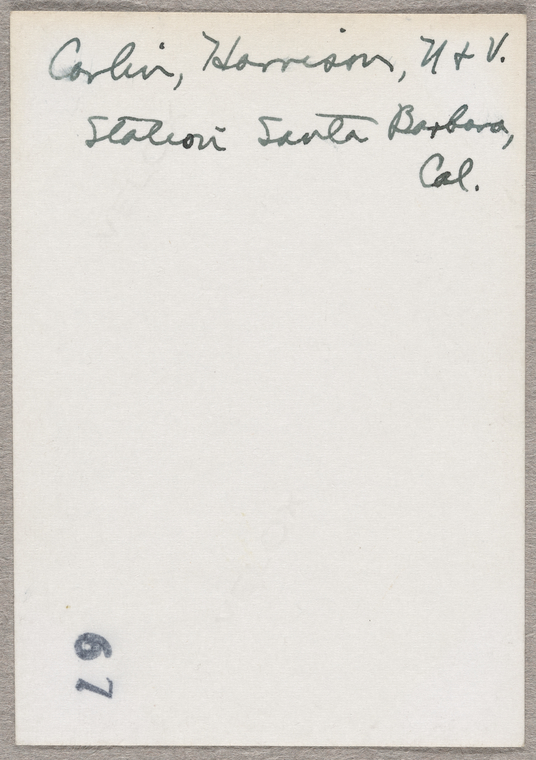 Carlin, Harrison, N & V.
Station Santa Barbara,
Cal.
67